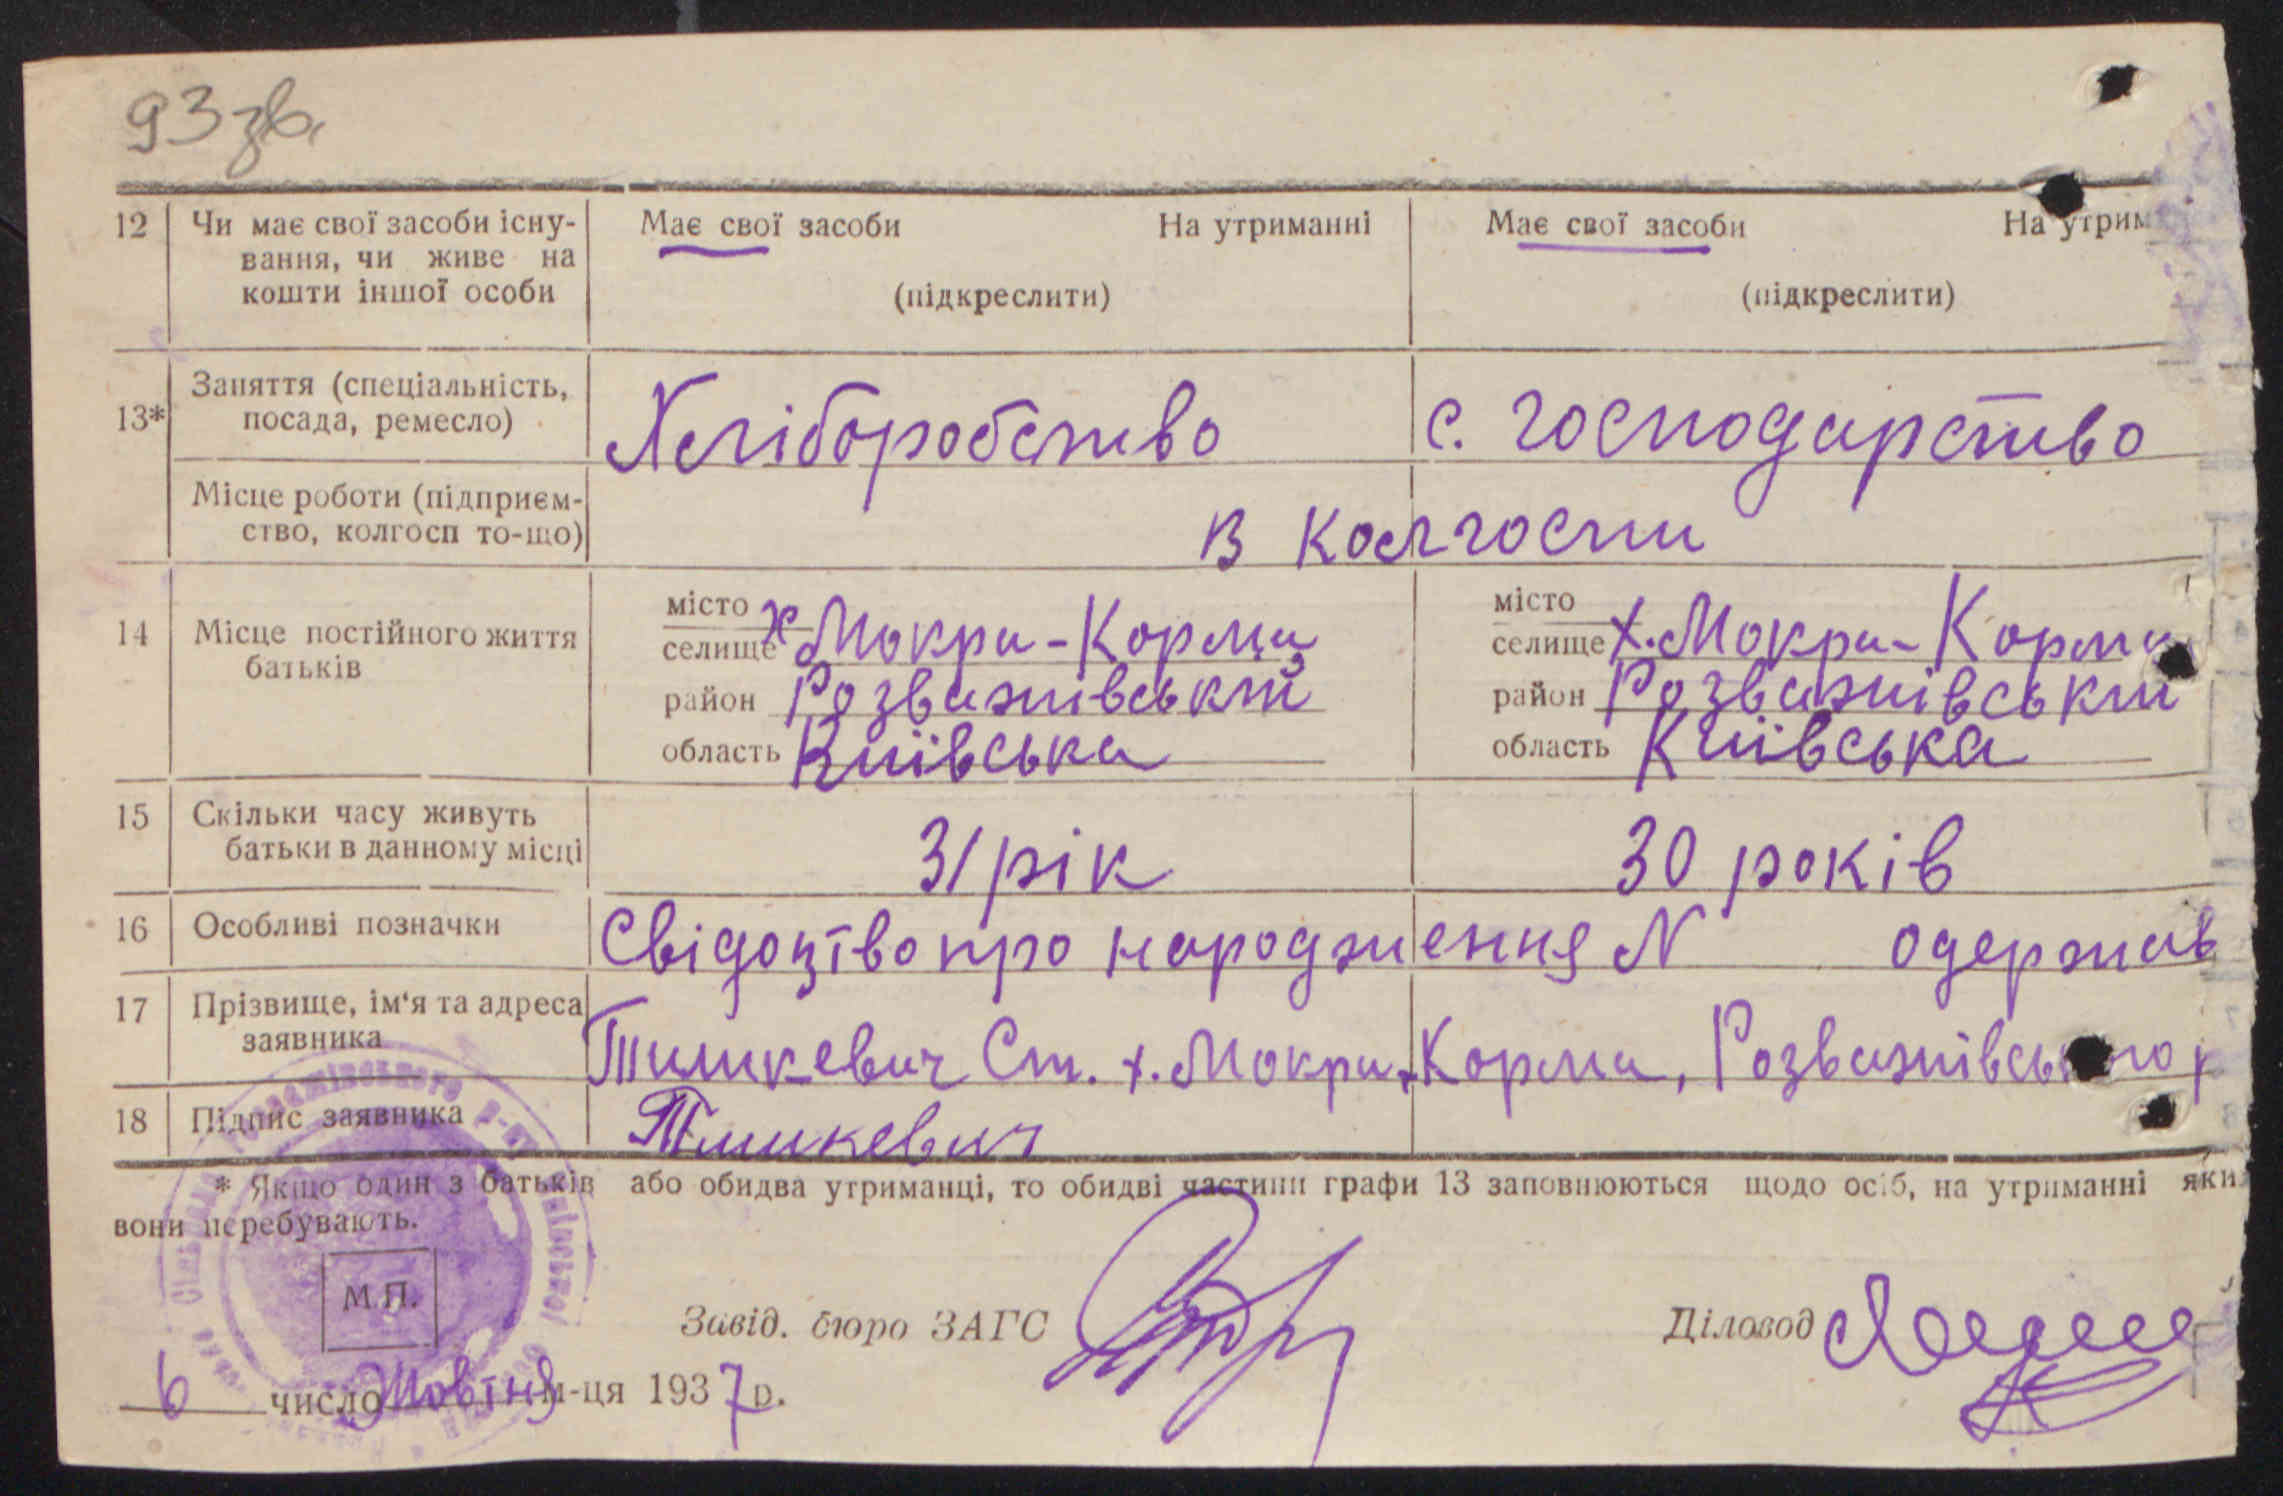 93 зв.
12 Чи має свої засоби існу- Має свої засоби На утриманні Має свої засоби На утрим
вання, чи живе на
кошти іншої особи (підкреслити) (підкреслити)
13* Заняття (спеціальність,
посада, ремесло) Хліборобство с. господарство
Місце роботи (підприєм-
ство, колгосп то-що) в колгоспи
14 Місце постійного життя
батьків
місто місто
селище х Мокра-Корма селище х. Мокра-Корма
район Розважівський район Розважівський
область Київська область Київська
15 Скільки часу живуть
батьки в данному місці 31 рік 30 років
16 Особливі позначки Свідоцтво про народження N одержав
17 Прізвище, ім'я та адреса
заявника Тишкевич Ст. х. Мокра-Корма, Розважівського р
18 Підпис заявника Тишкевич
* Якщо один з батьків або обидва утриманці, то обидві частини графи 13 заповнюються щодо осіб, на утриманні яки
вони перебувають.
М.П.
Завід. бюро ЗАГС Діловод
6 число Жовтня м-ця 1937 р.